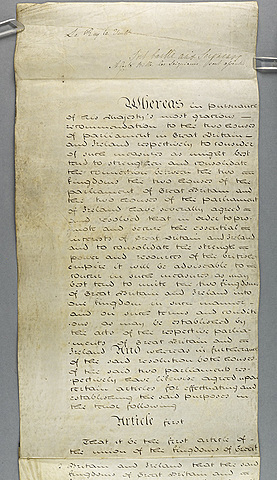 Le Roy le Veult
Soit baillé aux Seigneurs
A cette Bille les Seigneurs sont assentus
Whereas in pursuance
of his Majesty's most gracious
recommendation to the two houses
of parliament in Great Britain
and Ireland respectively to consider
of such measures as might best
tend to strengthen and consolidate
the connection between the two
kingdoms the two houses of the
parliament of Great Britain and
the two houses of the parliament
of Ireland have severally agreed
and resolved that in order to pro-
mote and secure the essential
interests of Great Britain and Ireland
and to consolidate the strength
power and resources of the British
empire it will be adviseable to
concur in such measures as may
best tend to unite the two kingdoms
of Great Britain and Ireland into
one kingdom in such manner
and on such terms and conditi-
ons as may be established by
the acts of the respective parlia-
ments of Great Britain and
Ireland And whereas in furtherance
of the said resolution both houses
of the said two parliaments res-
pectively have likewise agreed upon
certain articles for effectuating and
establishing the said purposes in
the tenor following
Article first
That it be the first article of
the union of the kingdoms of Great
Britain and Ireland that the said
kingdoms of Great Britain and